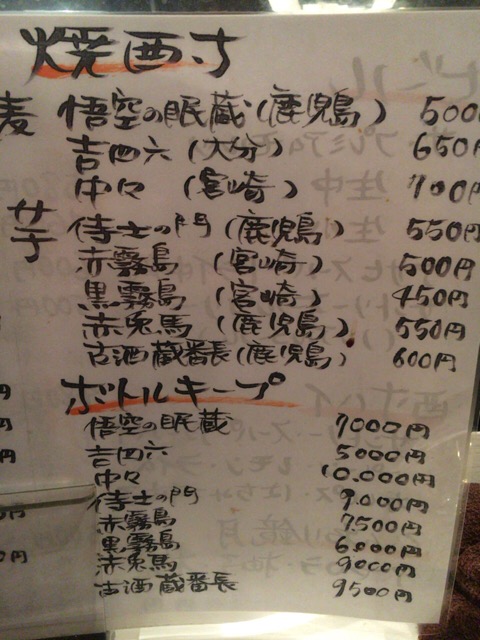 焼酎
麦
悟空の眠蔵(鹿児島) 500
吉四六(大分) 650円
中々(宮崎) 700円
芋
侍士の門(鹿児島) 550円
赤霧島(宮崎) 500円
黒霧島(宮崎) 450円
赤兎馬(鹿児島) 550円
古酒蔵番長(鹿児島) 600円
ボトルキープ
悟空の眠蔵 7000円
吉四六 5000円
中々 10.000円
侍士の門 9.000円
赤霧島 7500円
黒霧島 6000円
赤兎馬 9000円
古酒蔵番長 9500円